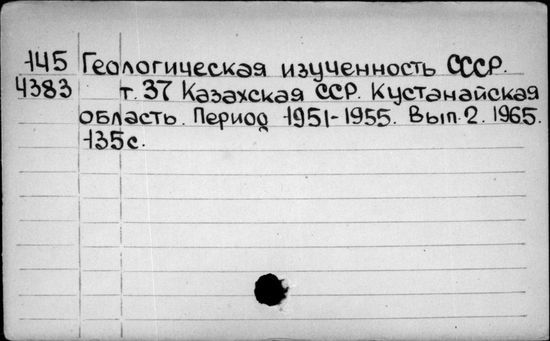 145 Геологическая изученность СССР.
4383 т. 37 Казахская ССР. Кустанайская
область. Период 1951-1955. Вып. 2. 1965.
135 с.